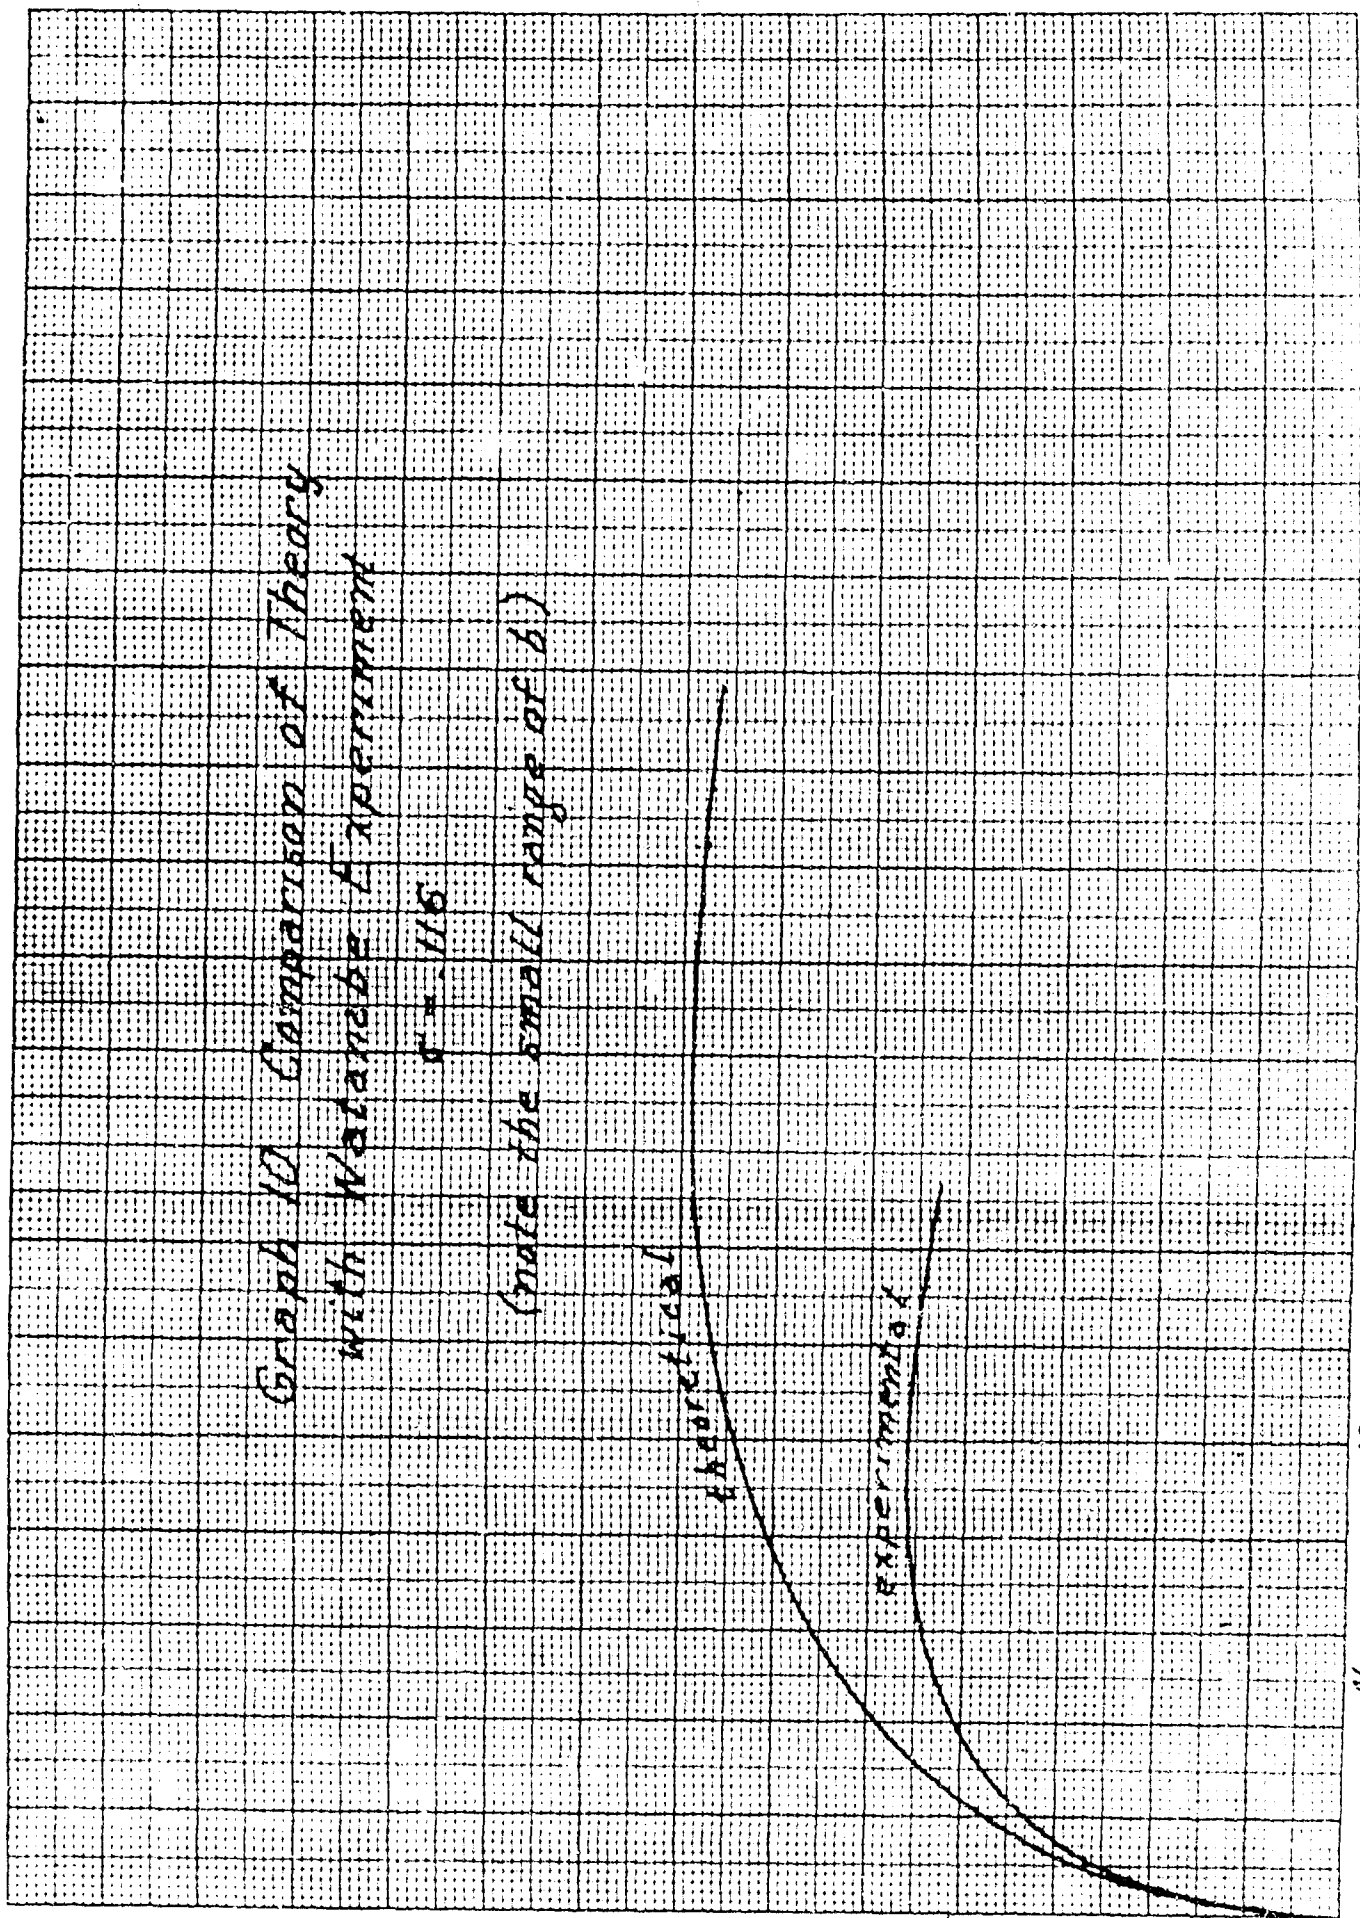 Graph 10 Comparison of Theory
with Watanabe Experiment
σ = .116
(note the small range of b)
theoretical
experimental